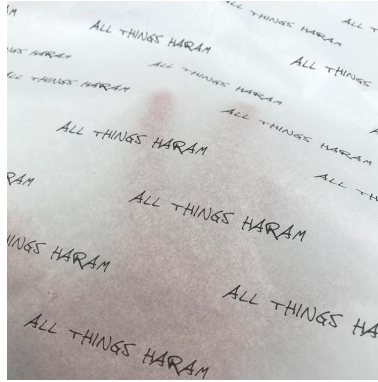 ALL THINGS HARAM
ALL THINGS
ALL THINGS HARAM
THINGS HARAM
ALL THINGS HARAM
ALL THINGS HARAM
ALL THINGS HARAM
ALL THINGS HARAM
ALL TH
ALL THINGS HARAM
THINGS HARAM
ALL THINGS HA
ALL THINGS HARAM